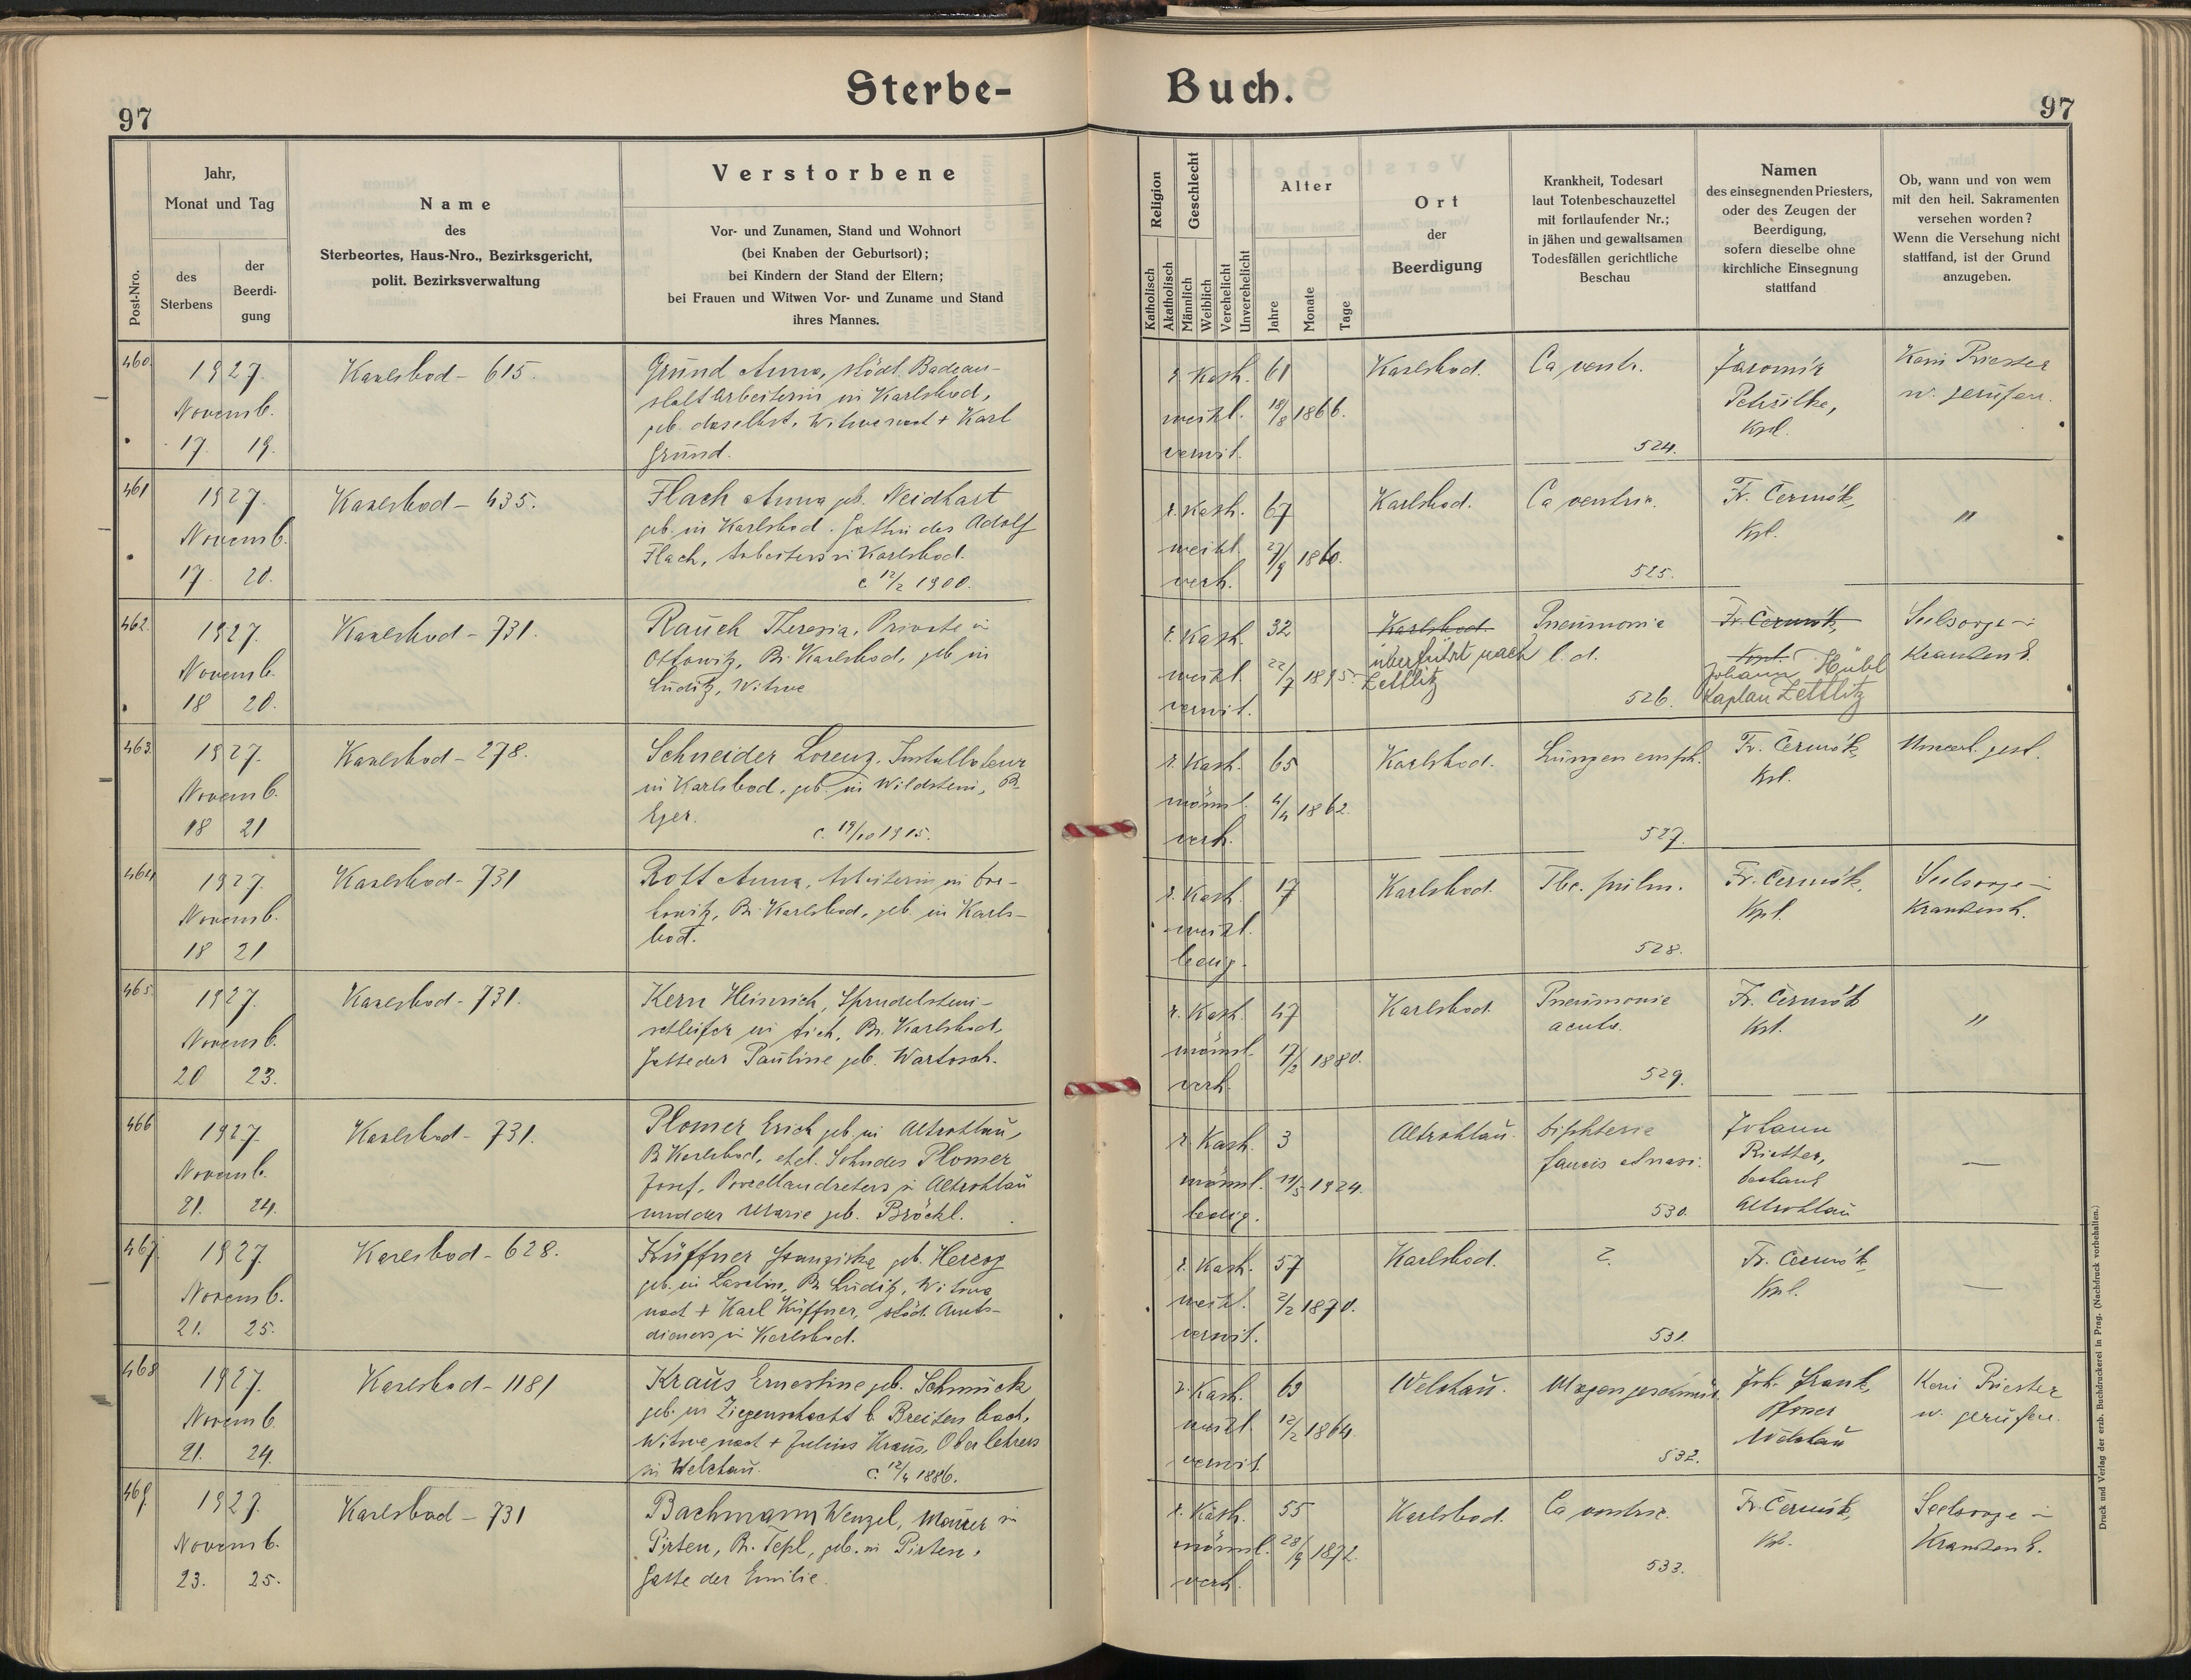 Sterbe- Buch.
97
97
Post-Nro.
Jahr,
Monat und Tag
des
Sterbens
der
Beerdi-
gung
Name
des
Sterbeortes, Haus-Nro., Bezirksgericht,
polit. Bezirksverwaltung
Verstorbene
Vor- und Zunamen, Stand und Wohnort
(bei Knaben der Geburtsort);
bei Kindern der Stand der Eltern;
bei Frauen und Witwen Vor- und Zuname und Stand
ihres Mannes.
Religion
Katholisch
Akatholisch
Geschlecht
Männlich
Weiblich
Verehelicht
Unverehelicht
Alter
Jahre
Monate
Tage
Ort
der
Beerdigung
Krankheit, Todesart
laut Totenbeschauzettel
mit fortlaufender Nr.;
in jähen und gewaltsamen
Todesfällen gerichtliche
Beschau
Namen
des einsegnenden Priesters,
oder des Zeugen der
Beerdigung,
sofern dieselbe ohne
kirchliche Einsegnung
stattfand
Ob, wann und von wem
mit den heil. Sakramenten
versehen worden?
Wenn die Versehung nicht
stattfand, ist der Grund
anzugeben.
460.
1927.
Novemb.
17. 19.
Karlsbad - 615.
Grund Anna, städt. Badean-
staltarbeiterin in Karlsbad,
geb. daselbst, Witwe nach + Karl
Grund.
r. Kath.
weibl.
verwit.
61
18/8 1866.
Karlsbad.
Ca ventr.
524.
Jaromír
Petrsilke,
Kpl.
Kein Priester
w. gerufen.
461
1927.
Novemb.
17. 20.
Karlsbad - 435.
Flach Anna geb. Neidhart
geb. in Karlsbad. Gattin des Adolf
Flach, Arbeiters in Karlsbad.
c 12/2 1900.
r. Kath.
weibl.
verh.
67
27/9 1860.
Karlsbad.
Ca ventric.
525.
Fr. Čermák,
Kpl.
"
462.
1927.
Novemb.
18 20.
Karlsbad - 731.
Rauch Theresia, Private in
Ottowitz, Bz. Karlsbad, geb in
Luditz, Witwe
r. Kath.
weibl.
verwit.
32
22/7 1895.
Karlsbad.
überführt nach
Zettlitz
Pneumonie
l. d.
526.
Fr. Čermák,
Kpl.
Johann Hübl
Kaplan Zettlitz
Seelsorge i
Krankenh.
463
1927.
Novemb.
18 21
Karlsbad - 278.
Schneider Lorenz, Installateur
in Karlsbad, geb. in Wildstein, Bz.
Eger.
c. 19/10 1915.
r. Kath.
männl.
verh.
65
4/4 1862.
Karlsbad.
Lungenemph.
527.
Fr. Čermák
Kpl.
464
1927.
Novemb.
18 21
Karlsbad - 731
Rott Anna, Arbeiterin in
Bz. Karlsbad, geb. in Karls-
bad.
r. Kath.
weibl.
ledig.
17
Karlsbad.
Tbc. pulm.
528.
Fr. Čermák,
Kpl.
Seelsorge i
Krankenh.
465.
1927.
Novemb.
20 23.
Karlsbad - 731.
Kern Heinrich, Sprudelstein-
schleifer in Aich, Bz. Karlsbad,
Gatte der Pauline geb. Wartosch.
r. Kath.
männl.
verh.
47
17/2 1880.
Karlsbad
Pneumonie
acuta.
529.
Fr. Čermák
Kpl.
"
466
1927.
Novemb.
21. 24.
Karlsbad - 731.
Plomer Erich geb. in Altrohlau,
Bz Karlsbad, ehel. Sohn des Plomer
Josef, Porzellandrehers in Altrohlau
und der Marie geb. Bröckl.
r. Kath.
männl.
ledig.
3
11/5 1924.
Altrohlau.
Diphterie
faucis et nasi.
530.
Johann
Riether,
Altrohlau
—
467.
1927.
Novemb.
21. 25.
Karlsbad - 628.
Küffner Franziska geb. Herzog
geb. in Bz. Luditz, Witwe
nach + Karl Küffner, städt. Amts-
dieners in Karlsbad.
r. Kath.
weibl.
verwit.
57
2/2 1870.
Karlsbad.
?
531.
Fr. Čermák,
Kpl.
—
468
1927.
Novemb.
21. 24.
Karlsbad - 1181
Kraus Ernestine geb. Schmuck
geb. in Ziegenschacht b. Breitenbach,
Witwe nach + Julius Kraus, Oberlehrers
in Welchau.
c. 12/4 1886.
r. Kath.
weibl.
verwit.
63
12/2 1864.
Welchau.
Magengeschwür.
532.
Joh. Frank,
Pfarrer
Welchau
Kein Priester
w. gerufen.
469.
1927.
Novemb.
23. 25.
Karlsbad - 731
Bachmann Wenzel, Maurer in
Pirten, Bz. Tepl, geb. in Pirten,
Gatte der Emilie.
r. Kath.
männl.
verh.
55
28/9 1872.
Karlsbad.
Ca ventric.
533.
Fr. Čermák,
Kpl.
Seelsorge i
Krankenh.
Druck und Verlag der erzb. Buchdruckerei in Prag. (Nachdruck vorbehalten.)